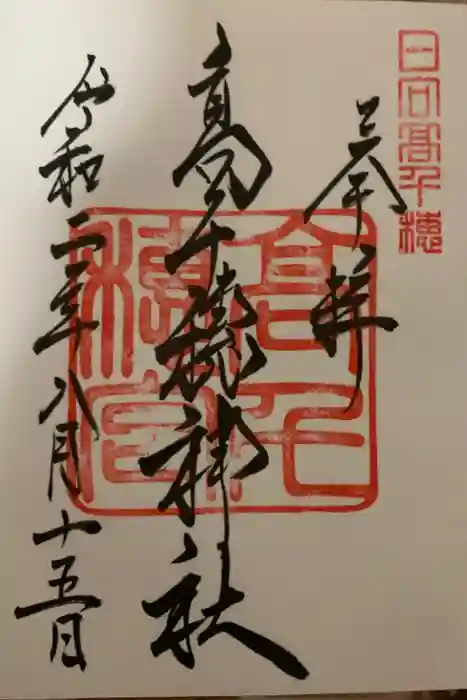 日向高千穂
奉拝
高千穂神社
令和二年八月十五日
高千穂宮